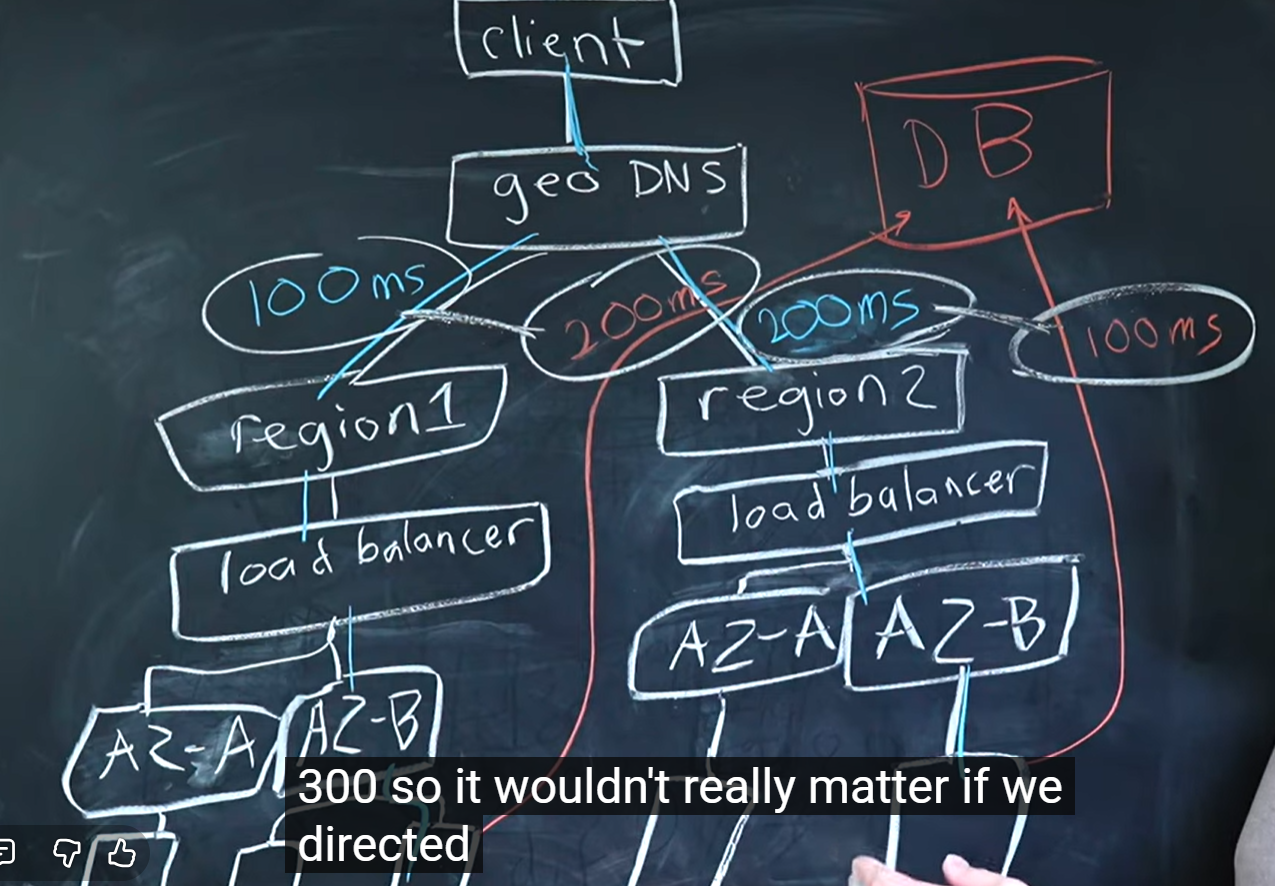 client
DB
geo DNS
100ms
200ms
200ms
100ms
region1
region2
load balancer
load balancer
AZ-A
AZ-B
AZ-A
AZ-B
300 so it wouldn't really matter if we
directed